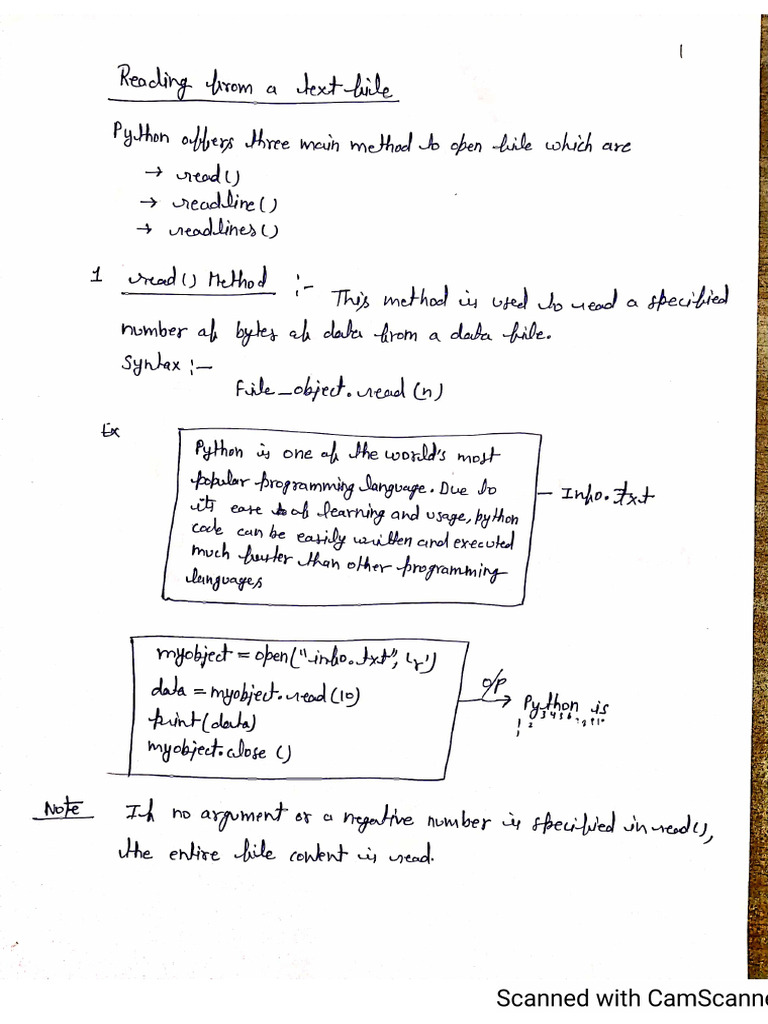 1
Reading from a text file
Python offers three main method to open file which are
→ read()
→ readline()
→ readlines()
1 read() Method :- This method is used to read a specified
number of bytes of data from a data file.
Syntax :-
File_object.read(n)
Ex
Python is one of the world's most
popular programming language. Due to
its ease of learning and usage, python
code can be easily written and executed
much faster than other programming
languages
- Info.txt
myobject = open("info.txt", 'r')
data = myobject.read(10)
print(data)
myobject.close ()
O/P
Python is
1 2 3 4 5 6 7 8 9 10
Note If no argument or a negative number is specified in read(),
the entire file content is read.
Scanned with CamScanne